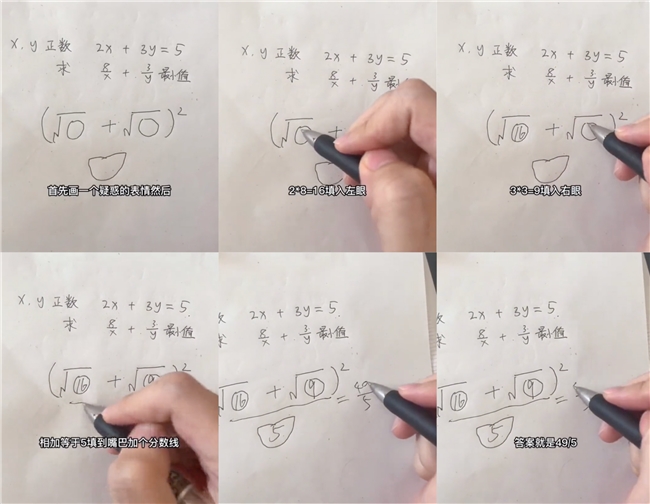 x, y 正数 2x + 3y = 5
求 8/x + 3/y 最值
(√○ + √○)²
首先画一个疑惑的表情然后
x, y 正数 2x + 3y = 5
求 8/x + 3/y 最值
(√ +
2*8=16填入左眼
x, y 正数 2x + 3y = 5
求 8/x + 3/y 最值
(√16 + √ )²
3*3=9填入右眼
x, y 正数 2x + 3y = 5.
求 8/x + 3/y 最值
(√16 + √9)²
相加等于5填到嘴巴加个分数线
2x + 3y = 5.
求 8/x + 3/y 最值
√16 + √9)² = 49/5
5
数 2x + 3y = 5.
8/x + 3/y 最值
√16 + √9)² =
5
答案就是49/5